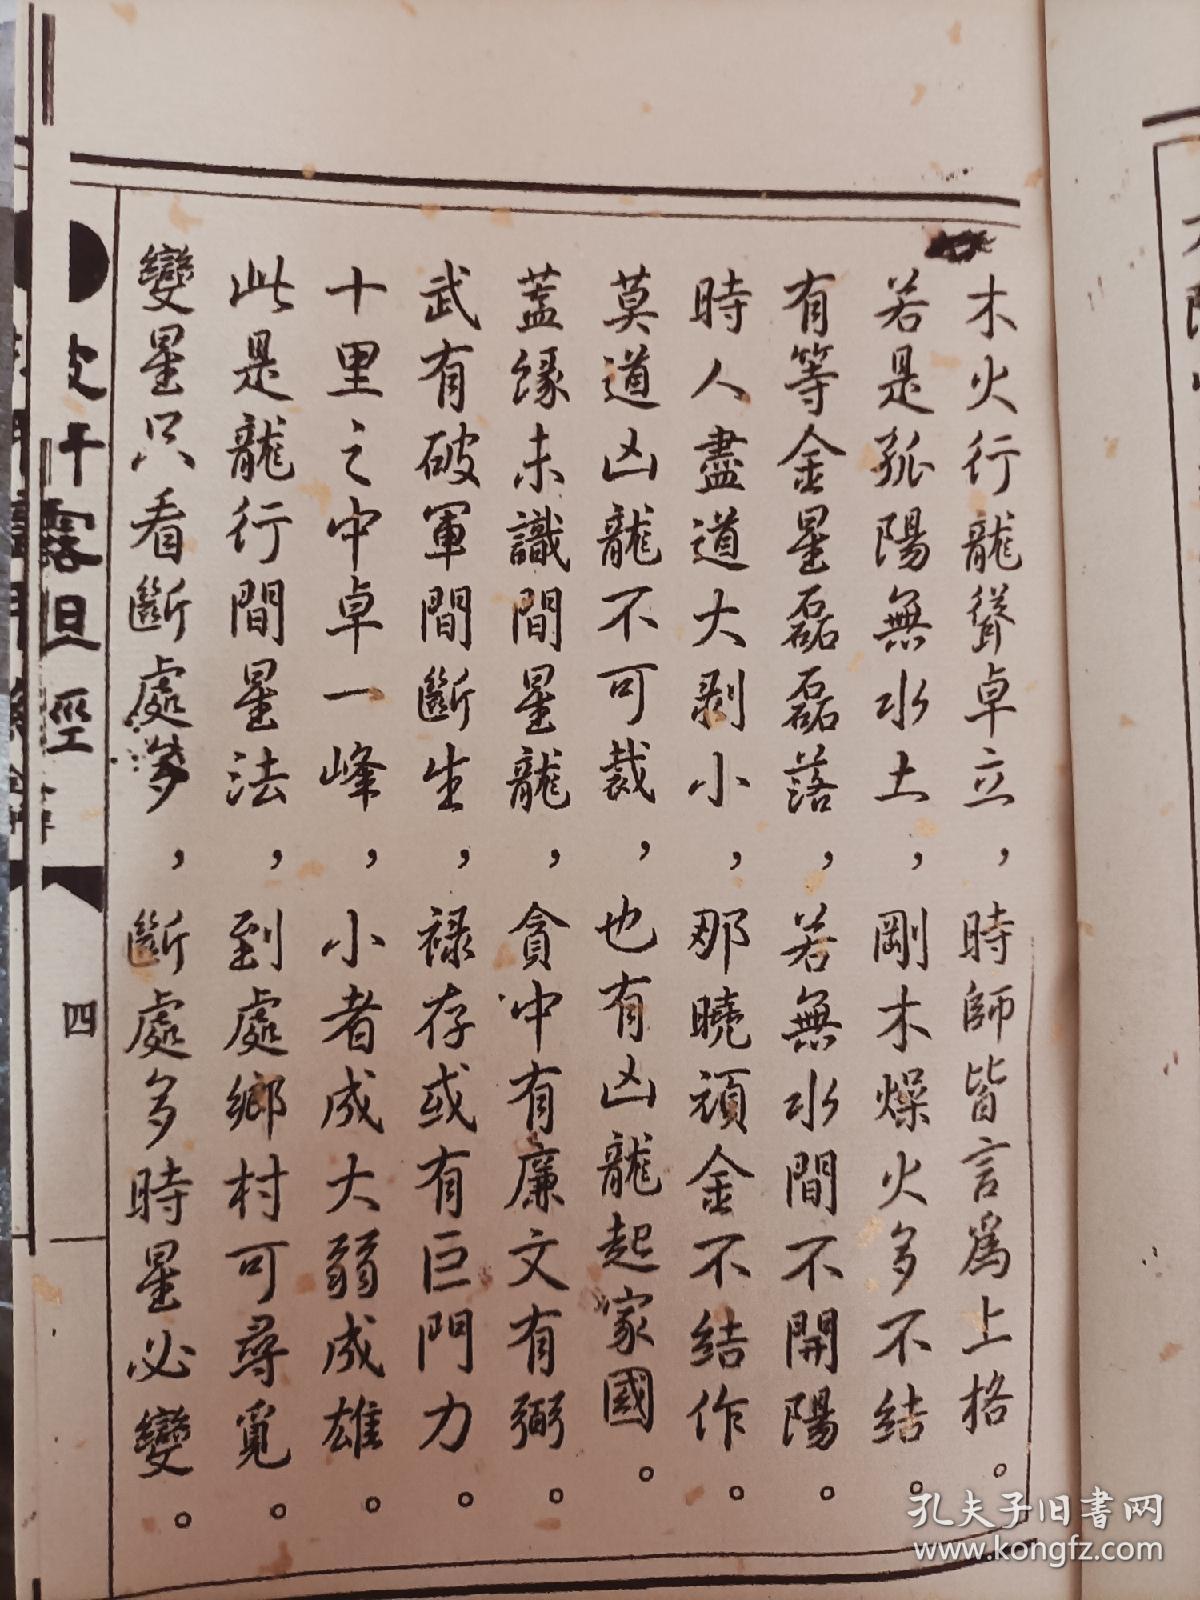 木火行龍聳卓立，時師皆言爲上格。
若是孤陽無水土，剛木燥火多不結。
有等金星磊磊落，若無水間不開陽。
時人盡道大剥小，那曉頑金不結作。
莫道凶龍不可裁，也有凶龍起家國。
蓋緣未識間星龍，貪中有廉文有弼。
武有破軍間斷生，禄存或有巨門力。
十里之中卓一峰，小者成大弱成雄。
此是龍行間星法，到處鄉村可尋覓。
變星只看斷處多，斷處多時星必變。
四
孔夫子旧書网
www.kongfz.com